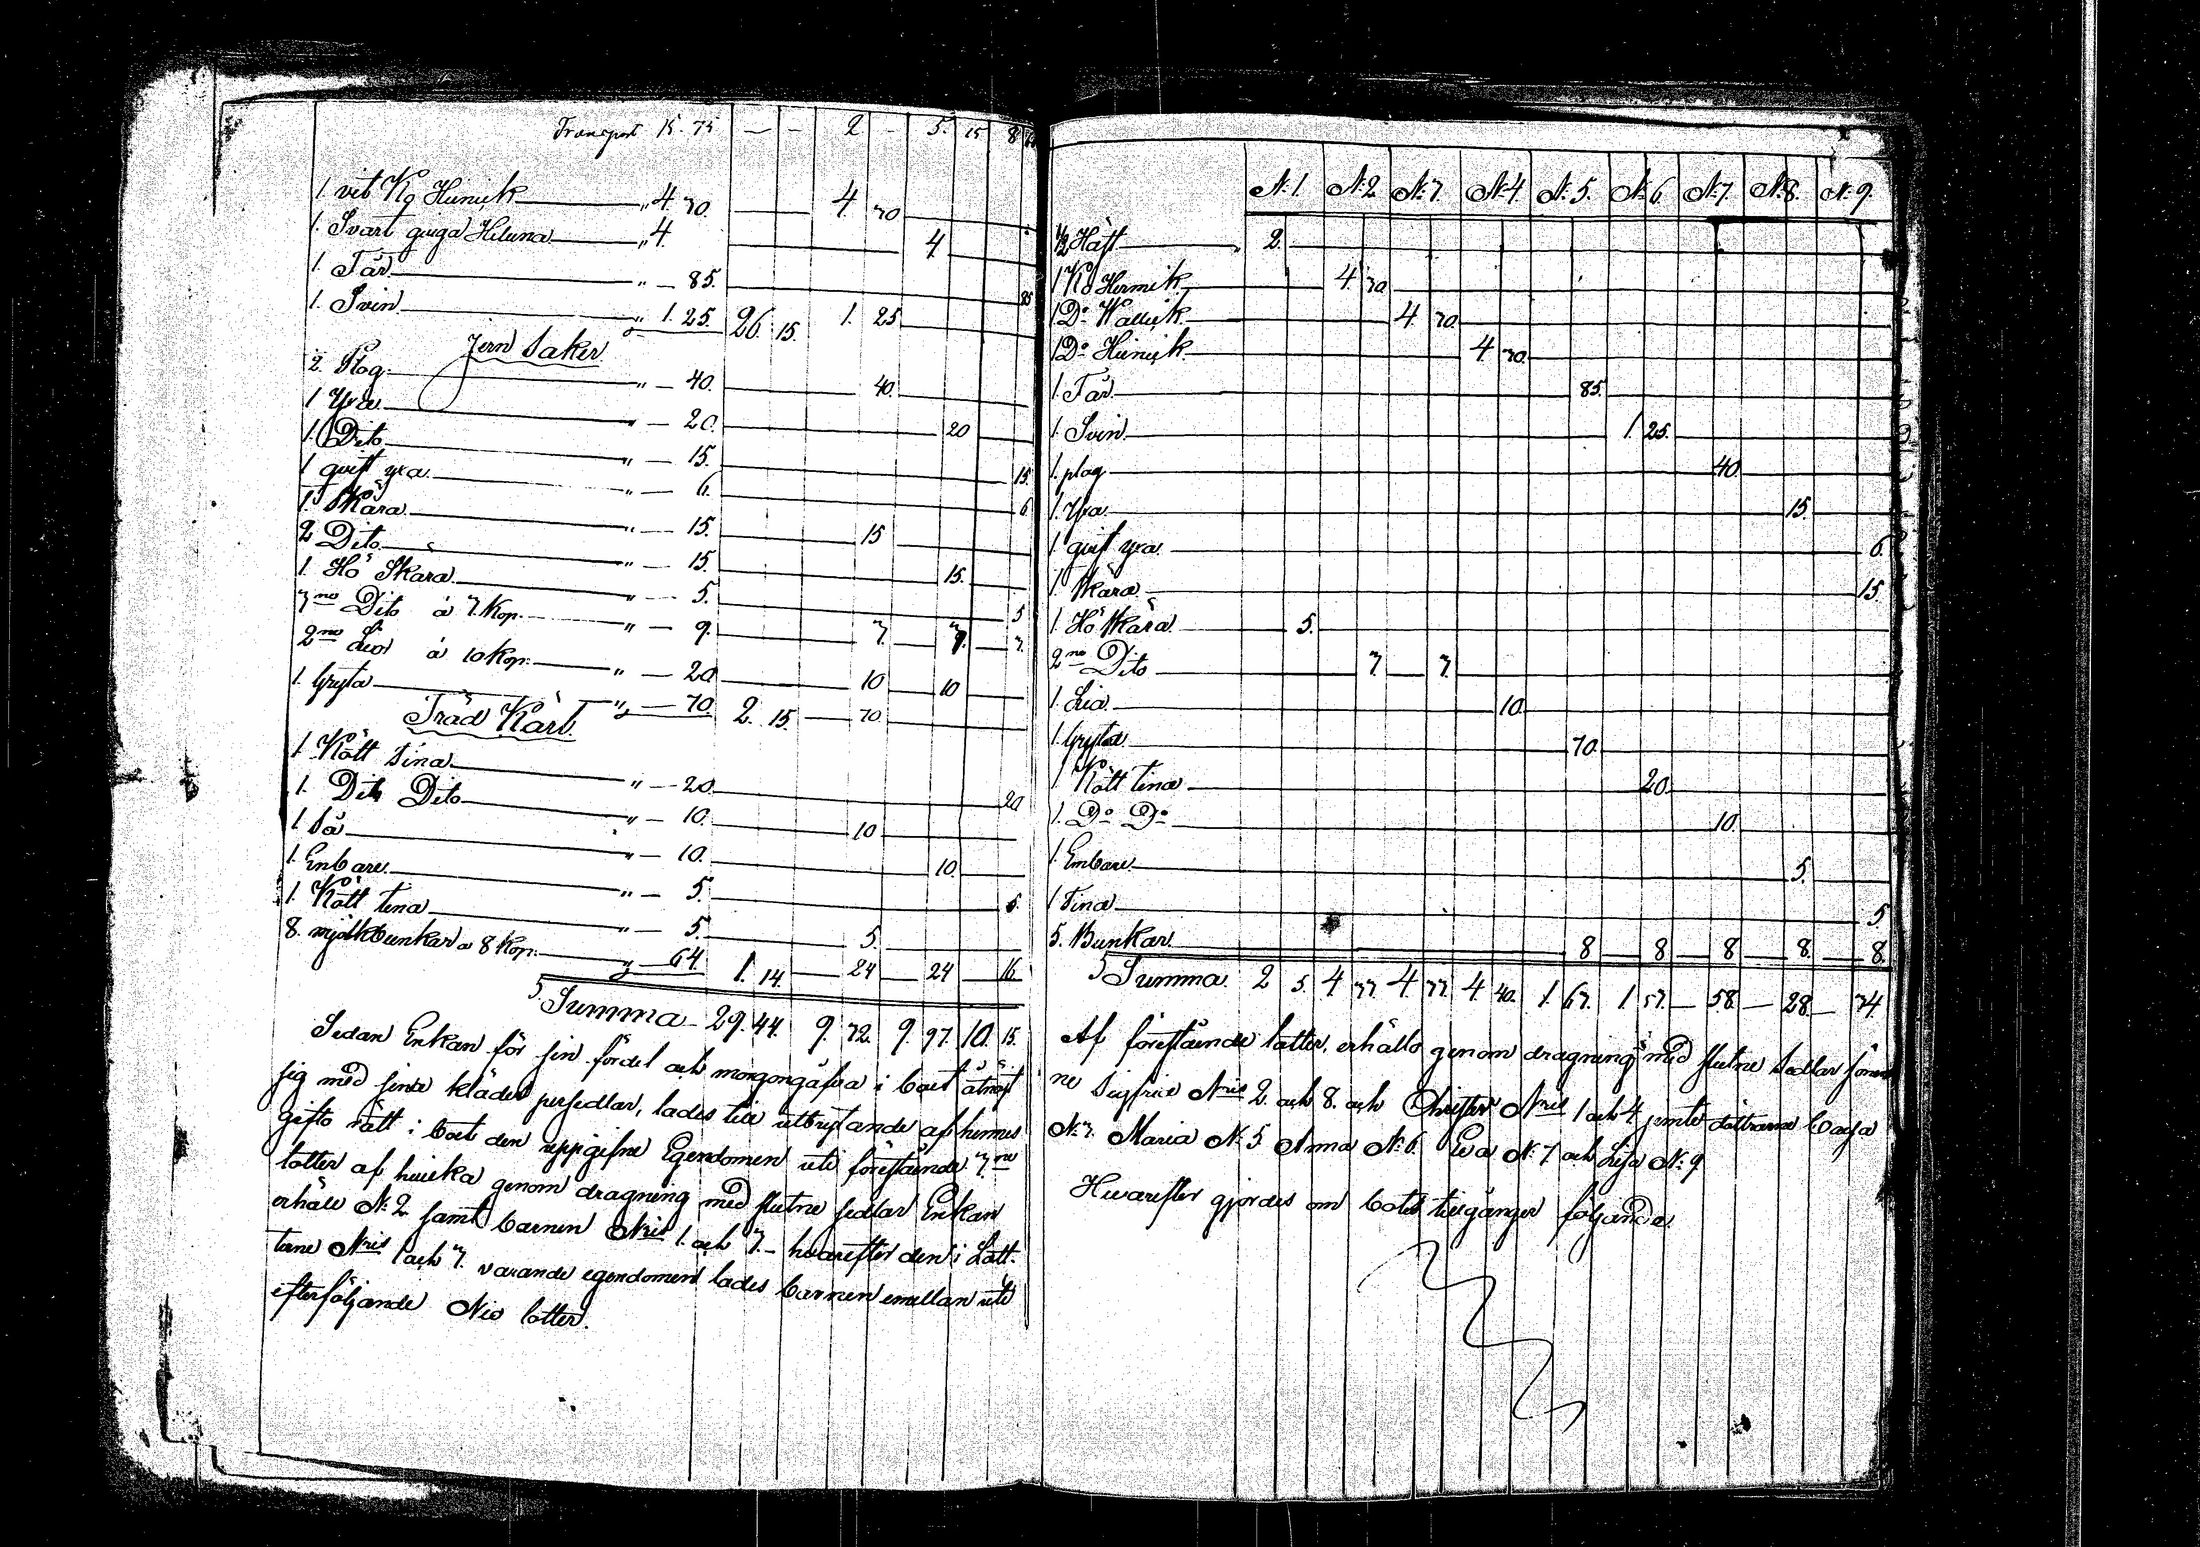 Transport 15. 75 — — 2 — 5. 15 8
1. vit Ko Hiinick „ 4. 30. 4 30
1. Svart qviga Heluna „ 4 4
1. Får „ — 85. 85
1. Svin „ 1. 25. 26. 15. 1. 25
Jern Saker
2. Plog „ — 40. 40.
1 Yxa „ — 20. 20
1. Dito „ — 15. 15
1 qvist yxa „ — 6. 6
1. Skära „ — 15. 15
2 Dito „ — 15. 15.
1. Hö Skära „ — 5. 5
3ne Dito à 3. Kop. „ — 9. 3. 3. 3.
2ne Liar à 10 Kop. „ — 20 10 10
1. Gryta „ — 70. 2. 15. — 70.
Träd Kärl
1. Kött tina „ — 20. 20
1. Dito Dito „ — 10. 10
1. Så „ — 10. 10.
1. Enbare „ — 5. 5.
1. Kött tina „ — 5. 5.
8. mjölkbunkar a 8 Kop. „ — 64. 1. 14. 24 24 16
Summa 29. 44. 9. 72. 9. 97. 10. 15.
Sedan Enkan för sin fördel och morgongåfva i boet åtnöjt
sig med sina klädes persedlar, lades till utbrytande af hennes
gifto rätt i boet den uppgifne Egendomen uti föreståendε 3ne
lotter af hvilka genom dragning med slutne sedlar Enkan
erhöll N:2 samt barnen Nris 1. och 3. — hvarefter den i Lott-
terne Nris 1 och 3. varande egendomen lades barnen emellan uti
efterföljande Nio lotter.
N:1. N:2 N:3. N:4 N:5. N:6. N:7. N:8. N:9.
1/2 Häst 2.
1 Ko Hermik 4. 30
1 Do Wallick 4 30.
1 Do Hiinick 4 30.
1. Får 85.
1. Svin 1. 25.
1. plog 40.
1. Yxa 15.
1 qvist yxa 6.
1 Skära 15.
1. Hö Skära 5.
2ne Dito 3. 3.
1. Lia 10.
1. Gryta 70.
1 Kött tina 20.
1. Do Do 10.
1 Embare 5.
1 Tina 5
5. Bunkar 8 8 8 8. 8.
Summa 2 5. 4 33. 4 33. 4 40. 1. 63. 1 53. — 58. — 28. — 34
Af föreståendε lotter, erhölls genom dragning med slutne Sedlar söner
ne Sigfrid Nris 2. och 8. och Christer Nris 1 och 4 jemte döttrarne Caisa
N:3. Maria N:5 Anna N:6. Eva N:7 och Lisa N:9
Hvarefter gjordes om bots tillgånger följande